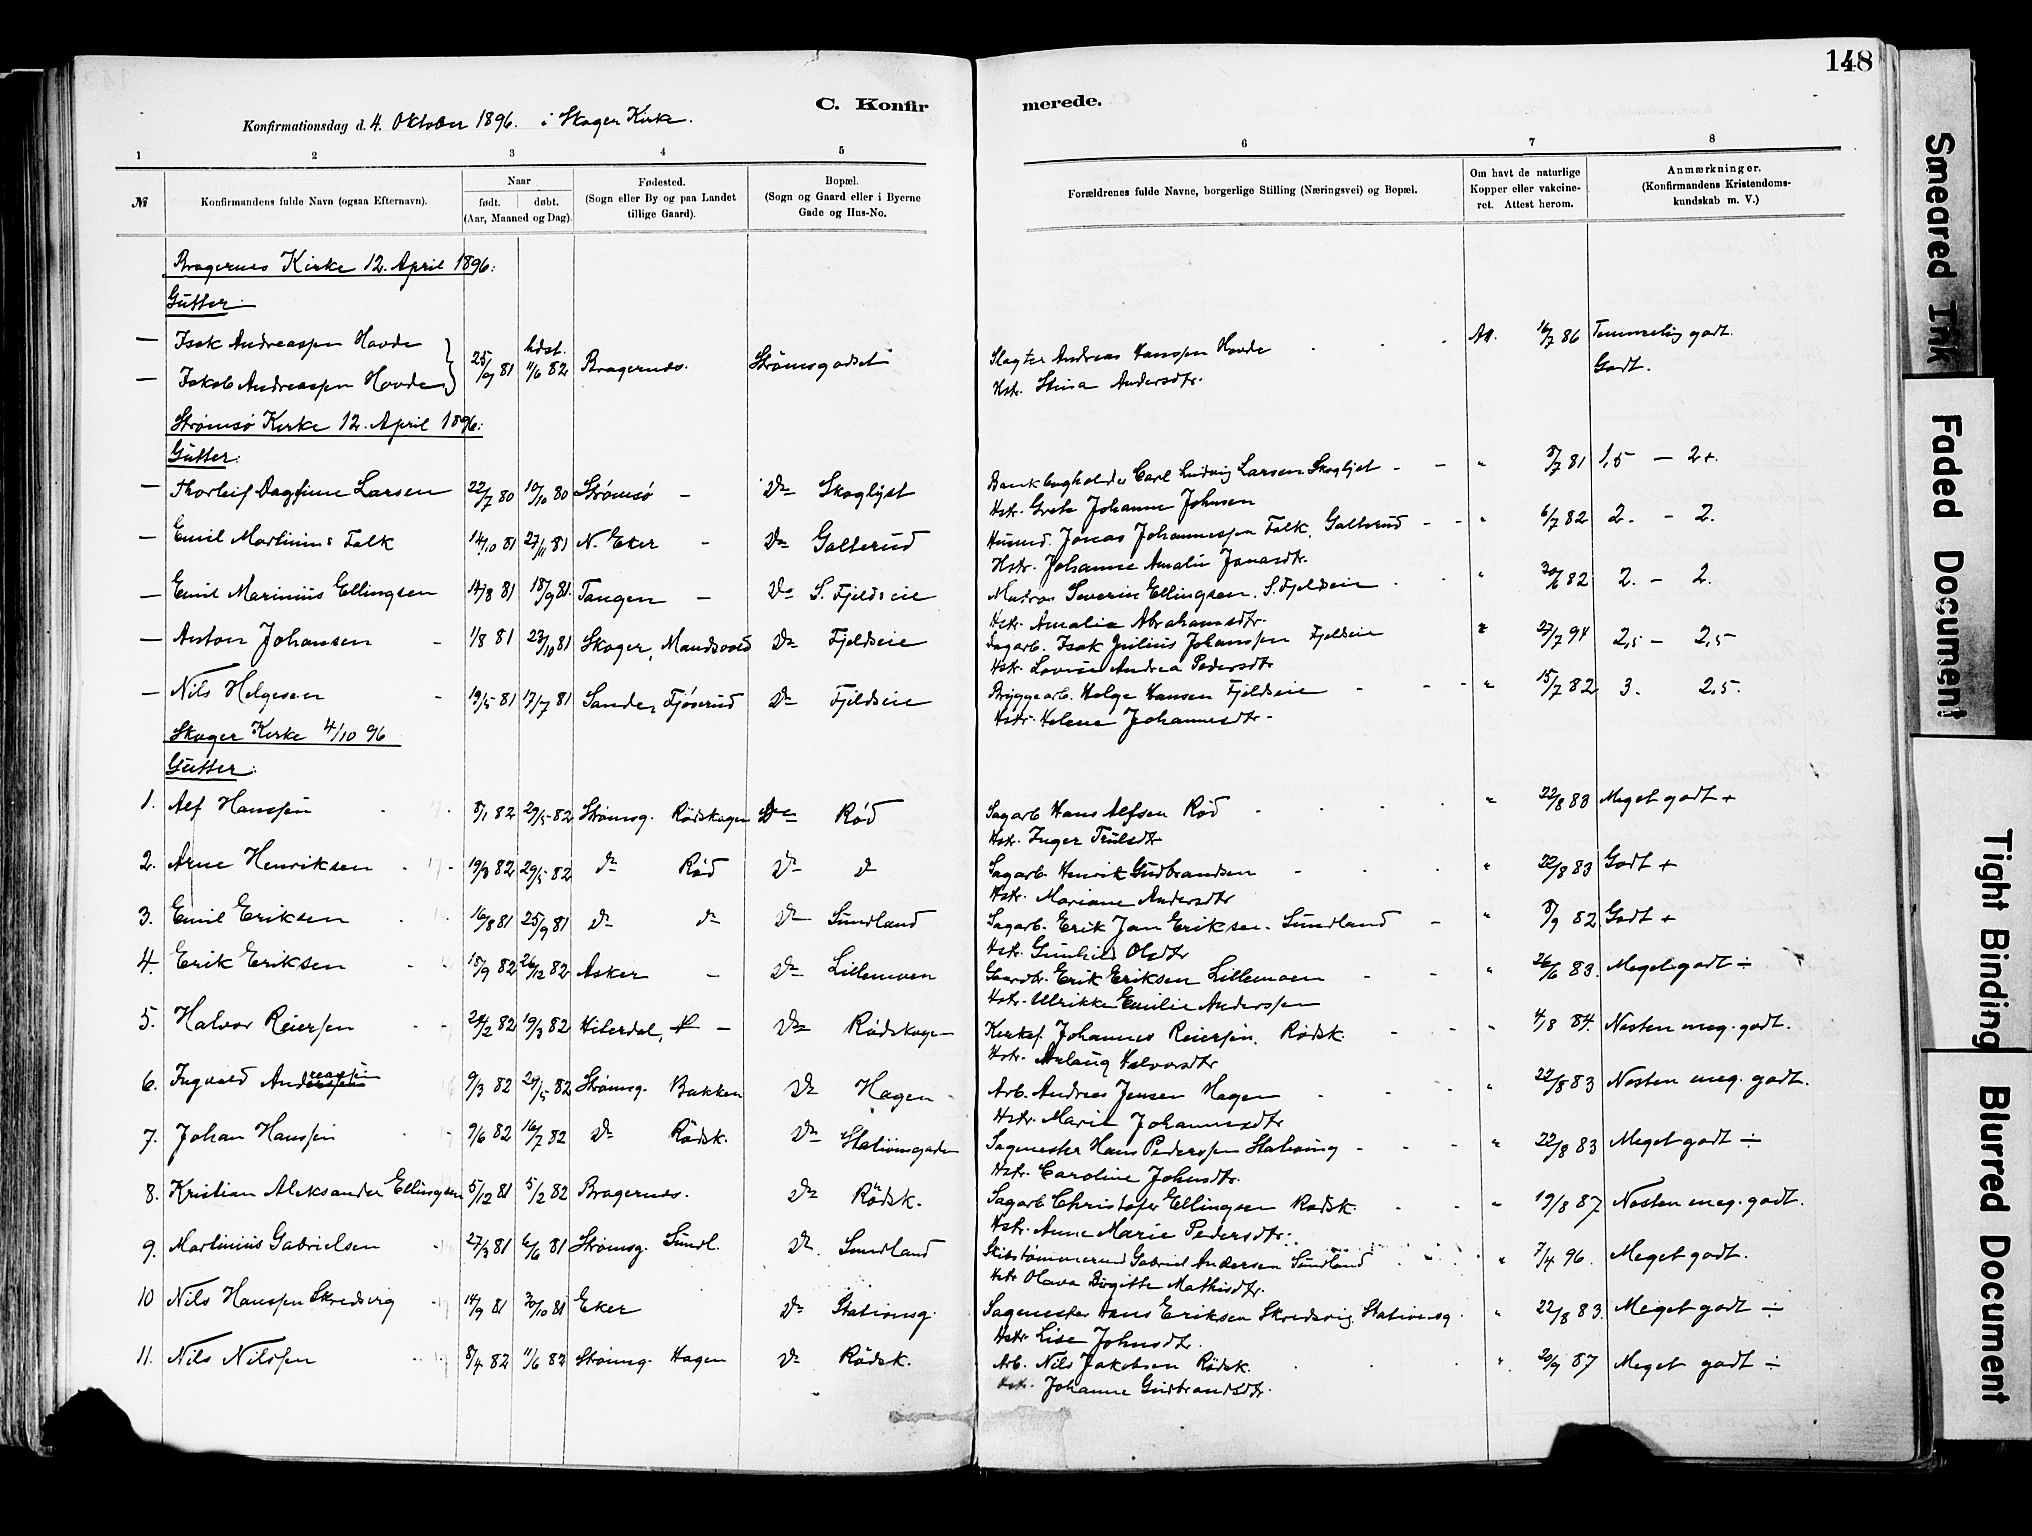 148
C. Konfir
merede.
Konfirmationsdag d. 4. Oktober 1896. i Skoger Kirke.
1 2 3 4 5 6 7 8
№
Konfirmandens fulde Navn (ogsaa Efternavn).
Naar
født. døbt.
(Aar, Maaned og Dag).
Fødested.
(Sogn eller By og paa Landet
tillige Gaard).
Bopæl.
(Sogn og Gaard eller i Byerne
Gade og Hus-No.
Forældrenes fulde Navne, borgerlige Stilling (Næringsvei) og Bopæl.
Om havt de naturlige
Kopper eller vakcine-
ret. Attest herom.
Anmærkninger.
(Konfirmandens Kristendoms-
kundskab m. V.)
Bragernes Kirke 12. April 1896:
Gutter:
— Isak Andreassen Hovde } 25/9 81 hdøt. 11/6 82 Bragernes. Strømsgodset Slagter Andreas Hanssen Hovde 16/7 86 Temmelig godt.
— Jakob Andreassen Hovde Hstr. Stina Andersdtr. Godt.
Strømsø Kirke 12. April 1896:
Gutter:
— Thorleif Dagfinn Larsen 22/7 80 10/10 80 Strømsø - Do Skoglyst Bankbogholder Carl Ludvig Larsen Skoglyst - - " 8/7 81 1,5 — 2+.
Hstr. Grete Johanne Johnsen
— Emil Martinius Falk 14/10 81 27/11 81 N. Eker - Do Galterud Husmd. Jonas Johannessen Falk, Galterud - - " 6/7 82 2. - 2.
Hstr. Johanne Amalie Jonasdtr.
— Emil Marinius Ellingsen 14/8 81 18/9 81. Tangen - Do S. Fjeldseie Matros Severin Ellingsen. S. Fjeldseie " 30/6 82 2. - 2.
Hstr. Amalia Abrahamsdtr.
— Anton Johansen 1/8 81 23/10 81 Skoger, Do Fjeldseie Sagarb. Isak Julius Johanssen Fjeldseie " 27/7 94 2,5 — 2,5
Hstr. Lovise Andrea Pedersdtr
— Nils Helgesen 19/5 81 17/7 81 Sande, Fjøserud Do Fjeldseie Bryggearb. Helge Hansen Fjeldseie - - - " 15/7 82 3. 2,5.
Hstr. Helene Johannesdtr.
Skoger Kirke 4/10 96
Gutter:
1. Alf Hanssen 8/1 82 29/5 82 Strømsg. Rødskogen Do Rød Sagarb. Hans Alfsen Rød " 22/8 83 Meget godt +
Hstr. Inger Trulsdtr
2. Arne Henriksen 19/3 82 29/5 82 do Rød Do do Sagarb. Henrik Gudbrandsen " 22/8 83 Godt +
Hstr. Mariane Andersdtr
3. Emil Eriksen 16/8 81 25/9 81 do do Do Sundland Sagarb. Erik Jan Eriksen. Sundland - " 8/9 82 Godt +
Hstr. Gunhild Olsdtr
4. Erik Eriksen 18/9 82 26/12 82 Asker - Do Lillemoen Gaardbr. Erik Eriksen Lillemoen " 26/6 83. Meget godt ÷
Hstr. Ulrikke Emilie Anderssen
5. Halvor Reierssen 24/2 82 19/3 82 Hiterdal, - Do Rødskogen Kirkef. Johannes Reierssen, Rødsk. " 4/8 84. Nesten meg. godt.
Hstr. Aslaug Halvorsdtr
6. Ingvald Andreassen 9/3 82 29/5 82 Strømsg. Bakken Do Hagen Arb. Andreas Jensen Hagen " 22/8 83 Nesten meg. godt.
Hstr. Marie Johannesdtr
7. Johan Hanssen 9/6 82 16/7 82 do Rødsk. Do Stationsgaden Sagmester Hans Pederssen Stationsg " 22/8 83 Meget godt ÷
Hstr. Caroline Johnsdtr.
8. Kristian Aleksander Ellingsen 5/12 81 5/2 82 Bragernes. Do Rødsk. Sagarb Christofer Ellingsen Rødsk. " 19/8 87 Nesten meg. godt.
Hstr. Anne Marie Pedersdtr.
9. Martinius Gabrielsen 27/3 81 6/6 81 Strømsg. Sundl. Do. Sundland Skibstømmermd Gabriel Andersen Sundland " 7/4 96. Meget godt.
Hstr Olava Birgitte Mathisdtr.
10 Nils Hanssen Skredsvig 14/9 81 30/10 81 Eker Do Stationsg. Sagmester Hans Eriksen Skredsvig. Stationsg. " 22/8 83. Meget godt ÷
Hstr Lise Johnsdtr.
11. Nils Nilssen 8/4 82 11/6 82 Strømsg. Hagen Do Rødsk. Arb. Nils Jakobsen Rødsk. " 20/9 87 Meget godt ÷
Hstr. Johanne Gudbrandsdtr.
Smeared Ink
Faded Document
Tight Binding
Blurred Document